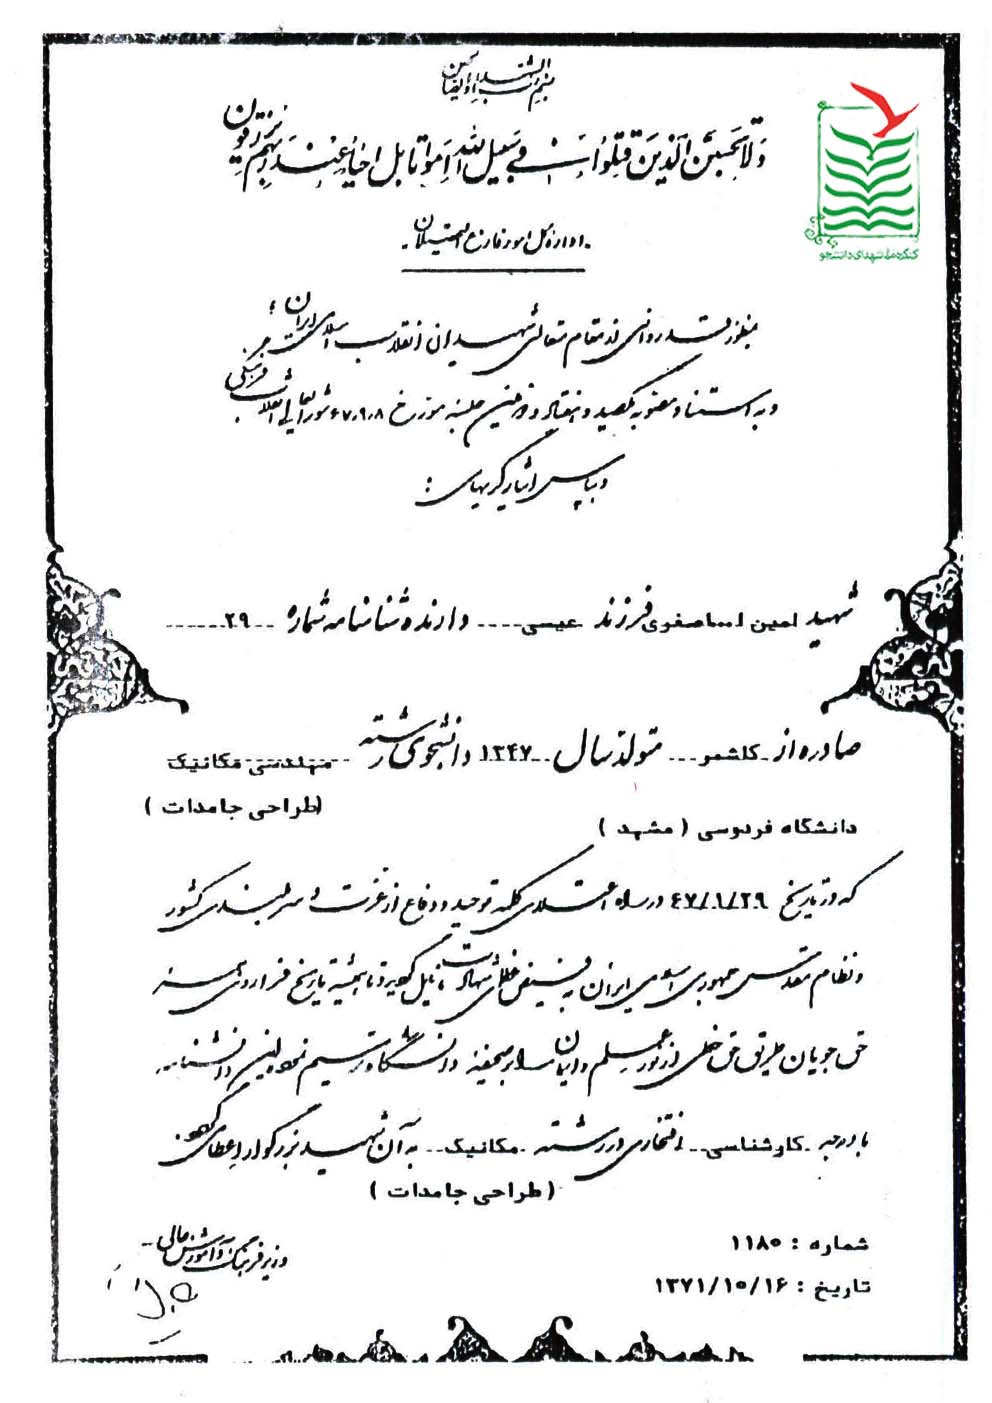 بسم رب الشهداء و الصدیقین
ولا تحسبن الذین قتلوا فی سبیل الله امواتا بل احیاء عند ربهم یرزقون
کنگره ملی شهدای دانشجو
-اداره کل امور فارغ التحصیلان-
بمنظور قدردانی از مقام متعالی شهیدان انقلاب اسلامی ایران؛
و به استناد مصوبه یکصد و پنجاه و دومین جلسه مورخ ۶۷،۹،۸ شورایعالی انقلاب فرهنگی
و بپاس ایثارگریهای :
شهید امین اسماصفوی فرزند عیسی دارنده شناسنامه شماره ۲۹
صادره از کاشمر متولد سال ۱۳۴۷ دانشجوی رشته مهندسی مکانیک
(طراحی جامدات )
دانشگاه فردوسی ( مشهد )
که در تاریخ ۶۷/۱/۲۹ در راه اعتلای کلمه توحید و دفاع از عزت و سربلندی کشور
و نظام مقدس جمهوری اسلامی ایران به فیض عظمای شهادت نایل گردید و تا همیشه تاریخ فراروی سبز
حق جویان طریق حق خطی از نور علم و ایمان را بر صحیفه دانشگاه ترسیم نمود این دانشنامه
با درجه کارشناسی افتخاری در رشته مکانیک به آن شهید بزرگوار اعطا می گردد.
(طراحی جامدات )
شماره : ۱۱۸۰
وزیر فرهنگ و آموزش عالی
تاریخ : ۱۳۷۱/۱۰/۱۶